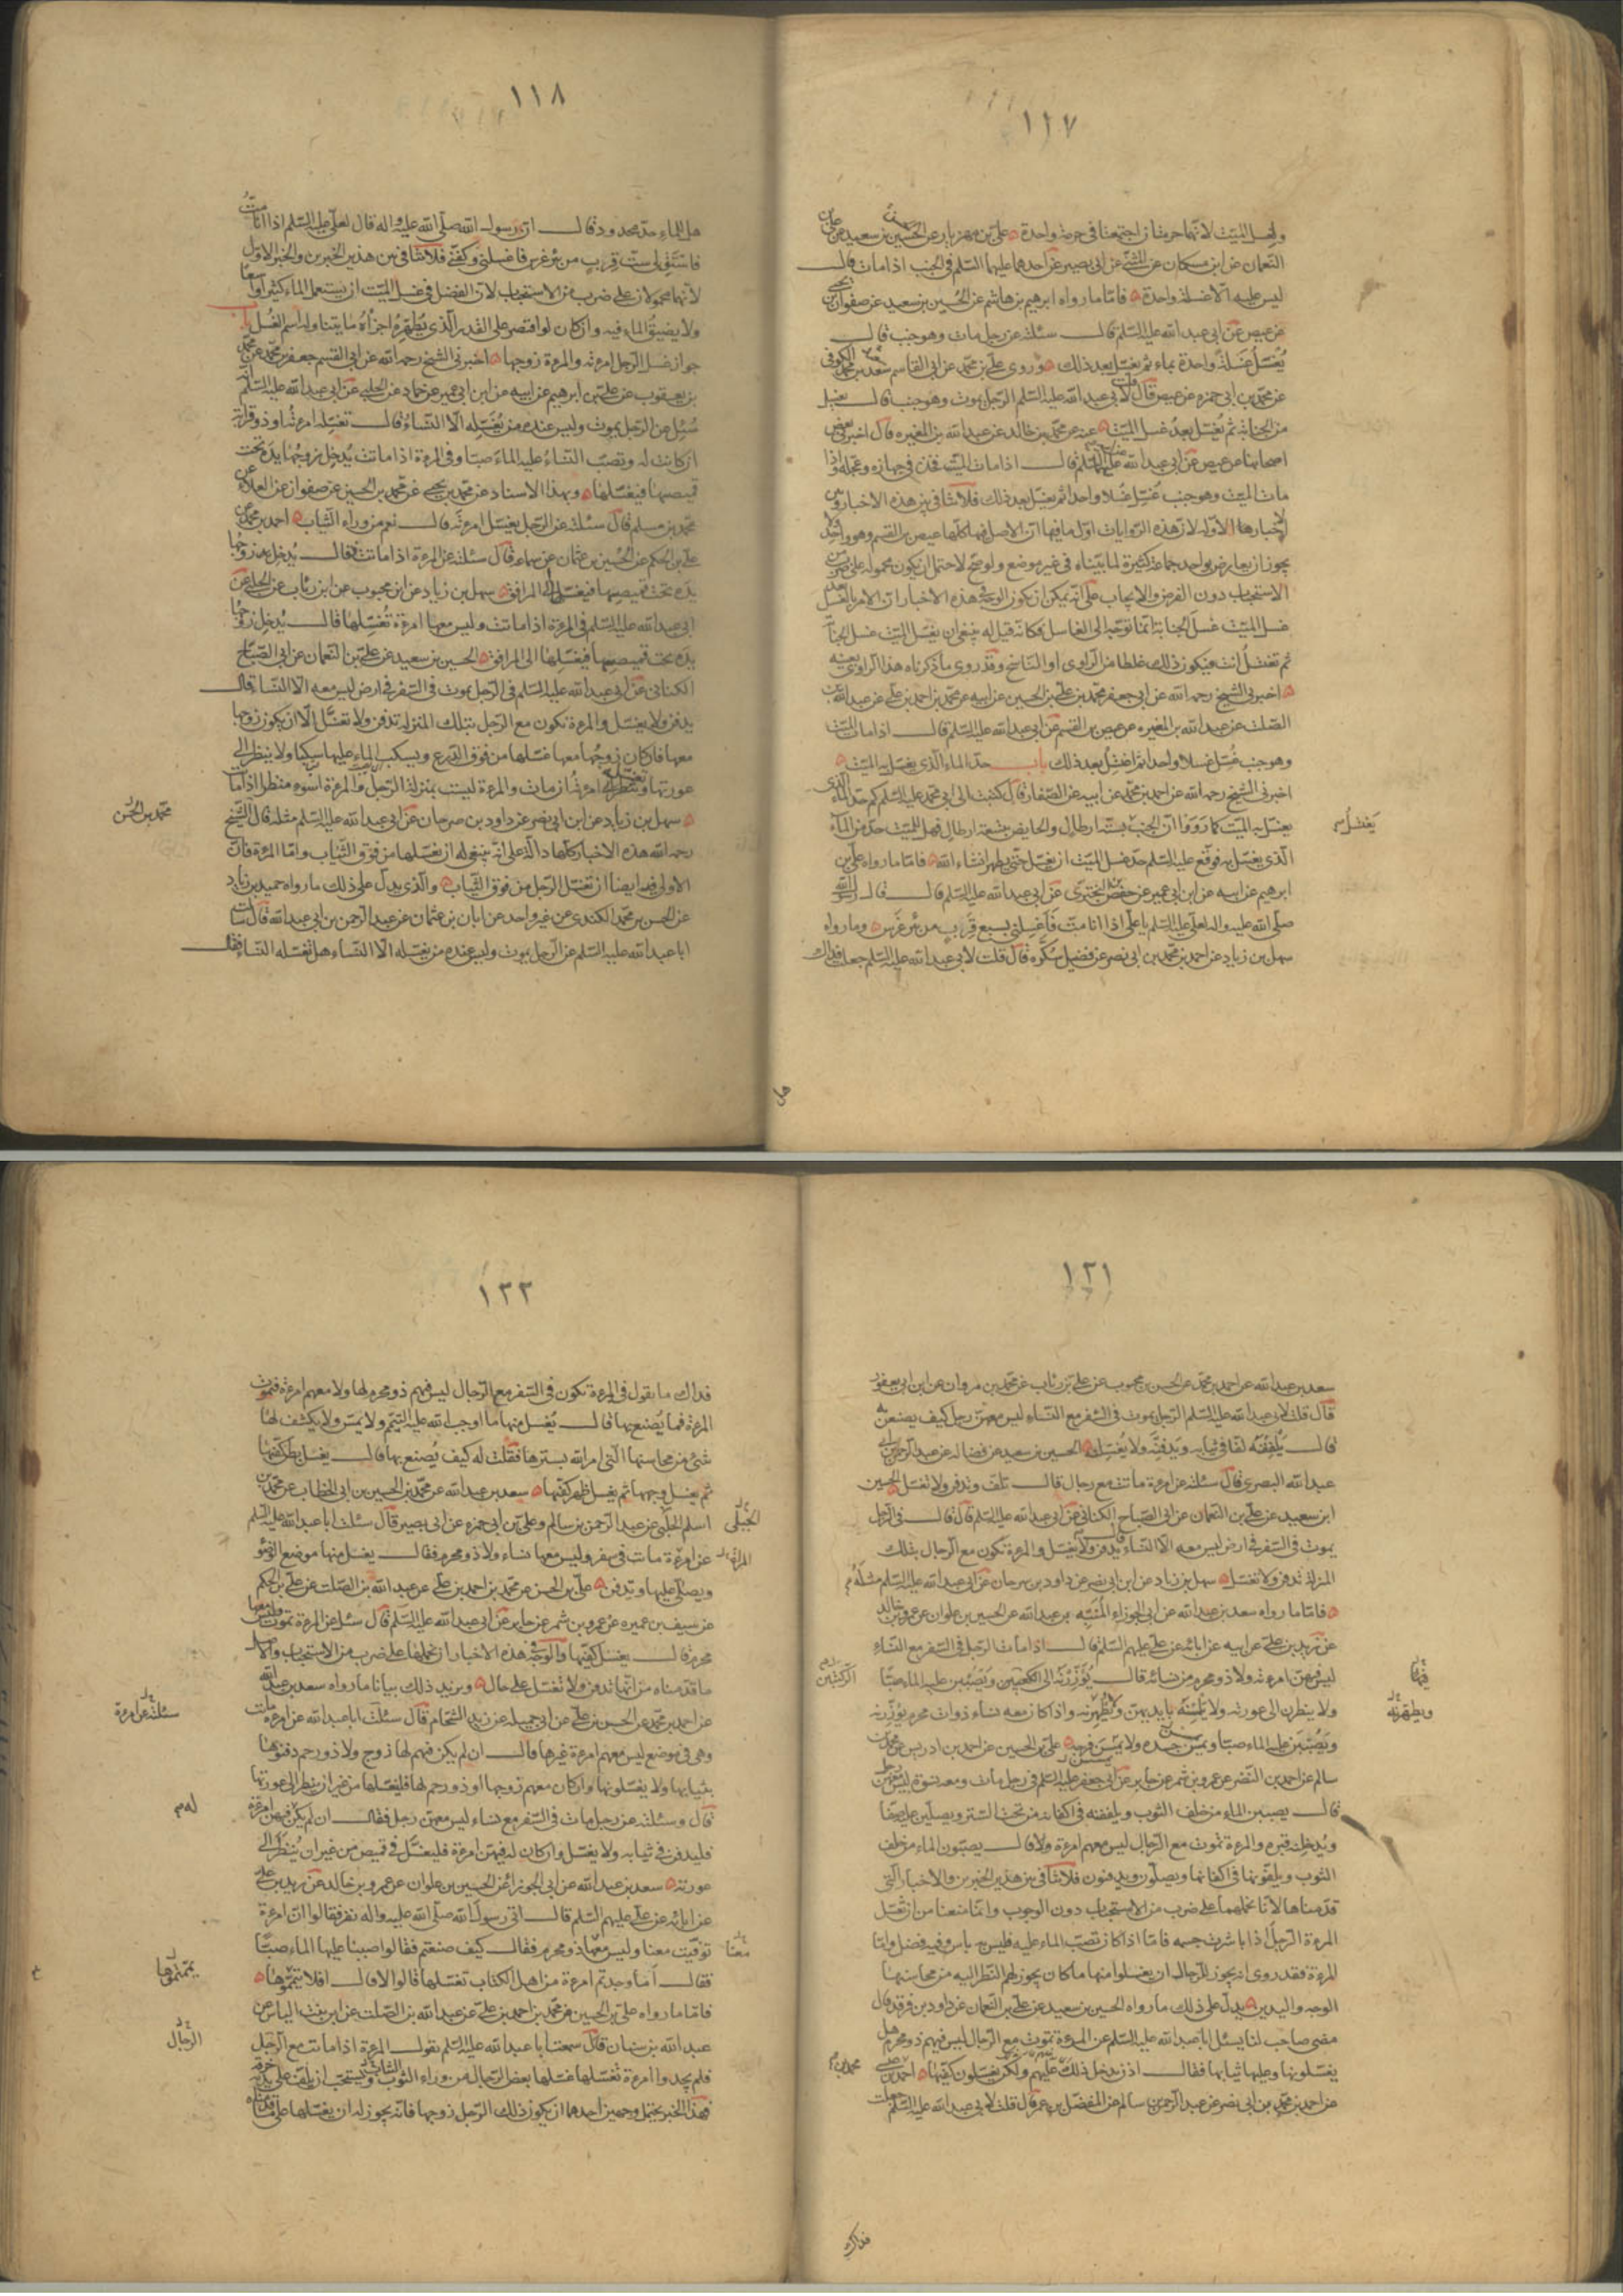 ١١٧
ولغسل الميت لانهما حرمتان اجتمعتا في حرمة واحدة علي بن مهزيار عن الحسين بن سعيد عن علي بن
النعمان عن ابن مسكان عن ابي بصير عن احدهما عليهما السلم في الجنب اذا مات قال
ليس عليه الا غسلة واحدة فاما ما رواه ابرهيم بن هاشم عن الحسين بن سعيد عن صفوان بن يحيى
عن عيص عن ابي عبد الله عليه السلم قال سئلته عن رجل مات وهو جنب قال
يغسل غسلة واحدة بماء ثم يغسل بعد ذلك وروى علي بن محمد عن ابي القاسم سعد بن محمد الكوفي
عن محمد بن ابي حمزه عن عيص قال قلت لابي عبد الله عليه السلم الرجل يموت وهو جنب قال يغسل
من الجنابة ثم يغسل بعد غسل الميت عنه عن محمد بن خالد عن عبد الله بن المغيره قال اخبرني بعض
اصحابنا عن عيص عن ابي عبد الله عليه السلم قال اذا مات الميت فخذ في جهازه وعجله واذا
مات الميت وهو جنب غسل غسلا واحدا ثم يغسل بعد ذلك فلا تنافي بين هذه الاخبار وبين
الاخبار الاوله لان هذه الروايات اول ما فيها ان الاصل فيها كلها عيص بن القسم وهو واحد ولا
يجوز ان يعارض بواحد جماعة كثيرة لما بيناه في غير موضع ولو صح لاحتمل ان يكون محموله على ضرب من
الاستحباب دون الفرض والايجاب على انه يمكن ان يكون الوجه في هذه الاخبار ان الامر بالغسل بعد
غسل الميت غسل الجنابة انما توجه الى الغاسل فكانه قيل له ينبغي ان تغسل الميت غسل الجنابة
ثم تغتسل انت فيكون ذلك غلطا من الراوي او الناسخ وقد روى ما ذكرناه هذا الراوي بعينه
اخبرني الشيخ رحمه الله عن ابي جعفر محمد بن علي بن الحسين عن ابيه عن محمد بن احمد بن علي عن عبد الله بن
الصلت عن عبد الله بن المغيره عن عيص بن القسم عن ابي عبد الله عليه السلم قال اذا مات الميت
وهو جنب غسل غسلا واحدا ثم اغتسل بعد ذلك باب حد الماء الذي يغسل به الميت
اخبرني الشيخ رحمه الله عن احمد بن محمد عن ابيه عن الصفار قال كتبت الى ابي محمد عليه السلم كم حد الماء الذي
يغسل به الميت كما رووا ان الجنب بستة ارطال والحايض بتسعة ارطال فهل للميت حد من الماء
الذي يغسل به فوقع عليه السلم حد غسل الميت ان يغسل حتى يطهر انشاء الله فاما ما رواه علي بن
ابرهيم عن ابيه عن ابن ابي عمير عن حفص بن البختري عن ابي عبد الله عليه السلم قال قال رسول الله
صلى الله عليه واله لعلي عليه السلم يا علي اذا انا مت فاغسلني بسبع قرب من بئر غرس وما رواه
سهل بن زياد عن احمد بن محمد بن ابي نصر عن فضيل سكره قال قلت لابي عبد الله عليه السلم جعلت فداك
يغتسل
هل
١١٨
هل للماء حد محدود قال ان رسول الله صلى الله عليه واله قال لعلي عليه السلم اذا انا مت
فاستق لي ست قرب من بئر غرس فاغسلني وكفني فلا تنافي بين هذين الخبرين والخبر الاول
لانهما محمولان على ضرب من الاستحباب لان الفضل في غسل الميت ان يستعمل الماء كثيرا واسعا
ولا يضيق الماء فيه وان كان لو اقتصر على القدر الذي يطهره اجزاه ما يتناوله اسم الغسل باب
جواز غسل الرجل امرءته والمرءة زوجها اخبرني الشيخ رحمه الله عن ابي القسم جعفر بن محمد عن محمد
بن يعقوب عن علي بن ابرهيم عن ابيه عن ابن ابي عمير عن حماد عن الحلبي عن ابي عبد الله عليه السلم انه
سئل عن الرجل يموت وليس عنده من يغسله الا النساء قال تغسله امرءته او ذو قرابة
ان كانت له وتصب النساء عليه الماء صبا وفي المرءة اذا ماتت يدخل زوجها يده تحت
قميصها فيغسلها وبهذا الاسناد عن محمد بن يحيى عن محمد بن الحسين عن صفوان عن العلا عن
محمد بن مسلم قال سئلته عن الرجل يغسل امرءته قال نعم من وراء الثياب احمد بن محمد عن
علي بن الحكم عن الحسين بن عثمان عن سماعه قال سئلته عن المرءة اذا ماتت فقال يدخل زوجها
يده تحت قميصها فيغسلها الى المرافق سهل بن زياد عن ابن محبوب عن ابن رئاب عن الحلبي عن
ابي عبد الله عليه السلم في المرءة اذا ماتت وليس معها امرءة تغسلها قال يدخل زوجها
يده تحت قميصها فيغسلها الى المرافق الحسين بن سعيد عن علي بن النعمان عن ابي الصباح
الكناني عن ابي عبد الله عليه السلم في الرجل يموت في السفر في ارض ليس معه الا النساء قال
يدفن ولا يغسل والمرءة تكون مع الرجل بتلك المنزله تدفن ولا تغسل الا ان يكون زوجها
معها فان كان زوجها معها غسلها من فوق الدرع ويسكب الماء عليها سكبا ولا ينظر الى
عورتها وتغسله امرءته ان مات والمرءة ليست بمنزلة الرجل والمرءة اسوء منظرا اذا ماتت
سهل بن زياد عن ابن ابي نصر عن داود بن سرحان عن ابي عبد الله عليه السلم مثله قال الشيخ
رحمه الله هذه الاخبار كلها دالة على انه ينبغي له ان يغسلها من فوق الثياب واما المرءة فان
الاولى فيها ايضا ان تغسل الرجل من فوق الثياب والذي يدل على ذلك ما رواه حميد بن زياد
عن الحسن بن محمد الكندي عن غير واحد عن ابان بن عثمان عن عبد الرحمن بن ابي عبد الله قال سئلت
ابا عبد الله عليه السلم عن الرجل يموت وليس عنده من يغسله الا النساء هل تغسله النساء فقال
محمد بن الحسن
١٢١
سعد بن عبد الله عن احمد بن محمد عن الحسن بن محبوب عن علي بن رئاب عن محمد بن مروان عن ابن ابي يعفور
قال قلت لابي عبد الله عليه السلم الرجل يموت في السفر مع النساء ليس معهن رجل كيف يصنعن به
قال يلففنه لفا في ثيابه ويدفنه ولا يغسلنه الحسين بن سعيد عن فضاله عن عبد الرحمن بن ابي
عبد الله البصري قال سئلته عن امرءة ماتت مع رجال قال تلف وتدفن ولا تغسل الحسين
ابن سعيد عن علي بن النعمان عن ابي الصباح الكناني عن ابي عبد الله عليه السلم قال قال في الرجل
يموت في السفر في ارض ليس معه الا النساء قال يدفن ولا يغسل والمرءة تكون مع الرجال بتلك
المنزلة تدفن ولا تغسل سهل بن زياد عن ابن ابي نصر عن داود بن سرحان عن ابي عبد الله عليه السلم مثله
فاما ما رواه سعد بن عبد الله عن ابي الجوزاء المنبه بن عبد الله عن الحسين بن علوان عن عمرو بن خالد
عن زيد بن علي عن ابيه عن ابائه عن علي عليهم السلم قال اذا مات الرجل في السفر مع النساء
ليس فيهن امرءته ولا ذو محرم من نسائه قال يؤزرنه الى الكعبين ويصببن عليه الماء صبا
ولا ينظرن الى عورته ولا يلمسنه بايديهن ويطهرنه واذا كان معه نساء ذوات محرم يؤزرنه
ويصببن عليه الماء صبا ويمسسن جسده ولا يمسسن فرجه علي بن الحسين عن احمد بن ادريس عن محمد بن
سالم عن احمد بن النضر عن عمرو بن شمر عن جابر عن ابي جعفر عليه السلم في رجل مات ومعه نسوة ليس معهن رجل
قال يصببن الماء من خلف الثوب ويلففنه في اكفانه من تحت الستر ويصلين عليه صفا
ويدخلنه قبره والمرءة تموت مع الرجال ليس معهم امرءة ولا قال يصبون الماء من خلف
الثوب ويلفونها في اكفانها ويصلون ويدفنون فلا تنافي بين هذين الخبرين والاخبار التي
قدمناها لانا نحملهما على ضرب من الاستحباب دون الوجوب وانما منعنا من ان تغسل
المرءة الرجل اذا باشرت جسمه فاما اذا كان تصب الماء عليه فليس به باس وفيه فضل واما
المرءة فقد روى انه يجوز للرجال ان يغسلوا منها ما كان يجوز لهم النظر اليه من محاسنها
الوجه واليدين يدل على ذلك ما رواه الحسين بن سعيد عن علي بن النعمان عن داود بن فرقد قال
مضى صاحب لنا يسئل ابا عبد الله عليه السلم عن المرءة تموت مع الرجال ليس فيهم ذو محرم هل
يغسلونها وعليها ثيابها فقال اذن يدخل ذلك عليهم ولكن يغسلون كفيها احمد بن
عن احمد بن محمد بن ابي نصر عن عبد الرحمن بن سالم عن المفضل بن عمر قال قلت لابي عبد الله عليه السلم جعلت
فيها
ويطهرنه
الركبتين
فداك
١٢٢
فداك ما تقول في المرءة تكون في السفر مع الرجال ليس فيهم ذو محرم لها ولا معهم امرءة فتموت
المرءة فما يصنع بها قال يغسل منها ما اوجب الله عليه التيمم ولا يمس ولا يكشف لها
شئ من محاسنها التي امر الله بسترها فقلت له كيف يصنع بها قال يغسل بطن كفيها
ثم يغسل وجهها ثم يغسل ظهر كفيها سعد بن عبد الله عن محمد بن الحسين بن ابي الخطاب عن محمد بن
اسلم الجبلي عن عبد الرحمن بن سالم وعلي بن ابي حمزه عن ابي بصير قال سئلت ابا عبد الله عليه السلم
عن امرءة ماتت في سفر وليس معها نساء ولا ذو محرم فقال يغسل منها موضع الوضوء
ويصلى عليها وتدفن علي بن الحسين عن محمد بن احمد بن علي عن عبد الله بن الصلت عن علي بن الحكم
عن سيف بن عميره عن عمرو بن شمر عن جابر عن ابي عبد الله عليه السلم قال سئل عن المرءة تموت وليس معها
محرم قال يغسل كفيها والوجه في هذه الاخبار ان نحملها على ضرب من الاستحباب والا
ما قدمناه من انها تدفن ولا تغسل على حال ويزيد ذلك بيانا ما رواه سعد بن عبد الله
عن احمد بن محمد عن الحسن بن علي عن ابي جميله عن زيد الشحام قال سئلت ابا عبد الله عن امرءة ماتت
وهي في موضع ليس معهم امرءة غيرها قال ان لم يكن فيهم لها زوج ولا ذو رحم دفنوها
بثيابها ولا يغسلونها وان كان معهم زوجها او ذو رحم لها فليغسلها من غير ان ينظر الى عورتها
قال وسئلته عن رجل مات في السفر مع نساء ليس معهن رجل فقال ان لم يكن فيهن امرءة
فليدفن في ثيابه ولا يغسل وان كان له فيهن امرءة فليغسل في قميص من غير ان ينظر الى
عورته سعد بن عبد الله عن ابي الجوزاء عن الحسين بن علوان عن عمرو بن خالد عن زيد بن علي
عن ابائه عن علي عليهم السلم قال اتى رسول الله صلى الله عليه واله نفر فقالوا ان امرءة
توفيت معنا وليس معها ذو محرم فقال كيف صنعتم فقالوا صببنا عليها الماء صبا
فقال اما وجدتم امرءة من اهل الكتاب تغسلها قالوا لا قال افلا يمموها
فاما ما رواه علي بن الحسين عن محمد بن احمد بن علي عن عبد الله بن الصلت عن ابن بنت الياس عن
عبد الله بن سنان قال سمعت ابا عبد الله عليه السلم يقول المرءة اذا ماتت مع الرجل
فلم يجدوا امرءة تغسلها غسلها بعض الرجال من وراء الثوب ويستحب ان يلف على يديه خرقة
فهذا الخبر يحتمل وجهين احدهما ان يكون ذلك الرجل زوجها فانه يجوز له ان يغسلها على ما قدمناه
الجبلي
المرأة
سئلته عن امرءة
له
معنا
يممتموها
الرجال